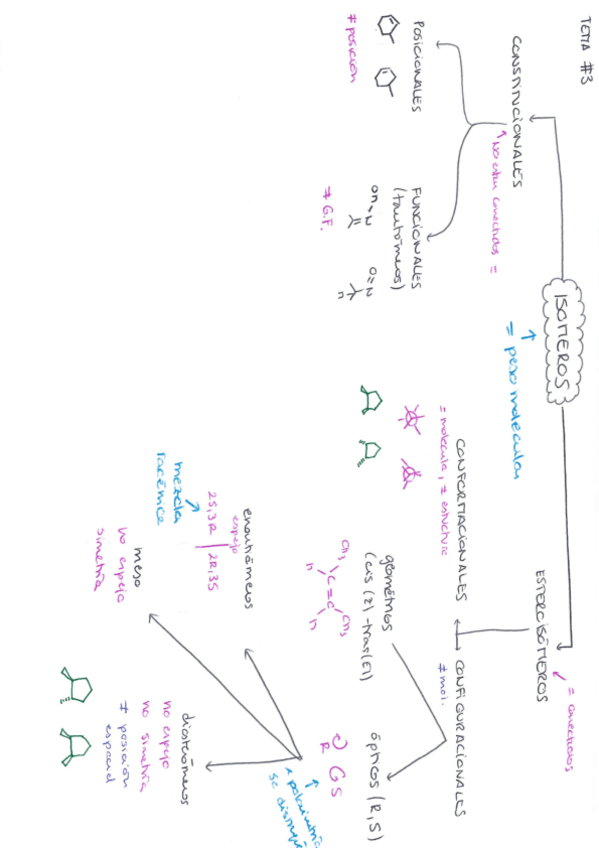 TEMA #3
ISÓMEROS
= peso molecular
CONSTITUCIONALES
NO están conectados =
POSICIONALES
≠ posición
FUNCIONALES
(tautómeros)
≠ G.F.
ESTEREOISÓMEROS
= conectados
CONFORMACIONALES
= molécula, ≠ estructura
CONFIGURACIONALES
≠ mol.
geométricos
(cis (Z) - tras (E))
CH3
C=C
CH3
H
H
ópticos (R,S)
R
S
* polarimetría
enantiómeros
espejo
2S,3R | 2R,3S
mezcla
racémica
meso
no espejo
simetría
diasterómeros
no espejo
no simetría
≠ posición
espacial